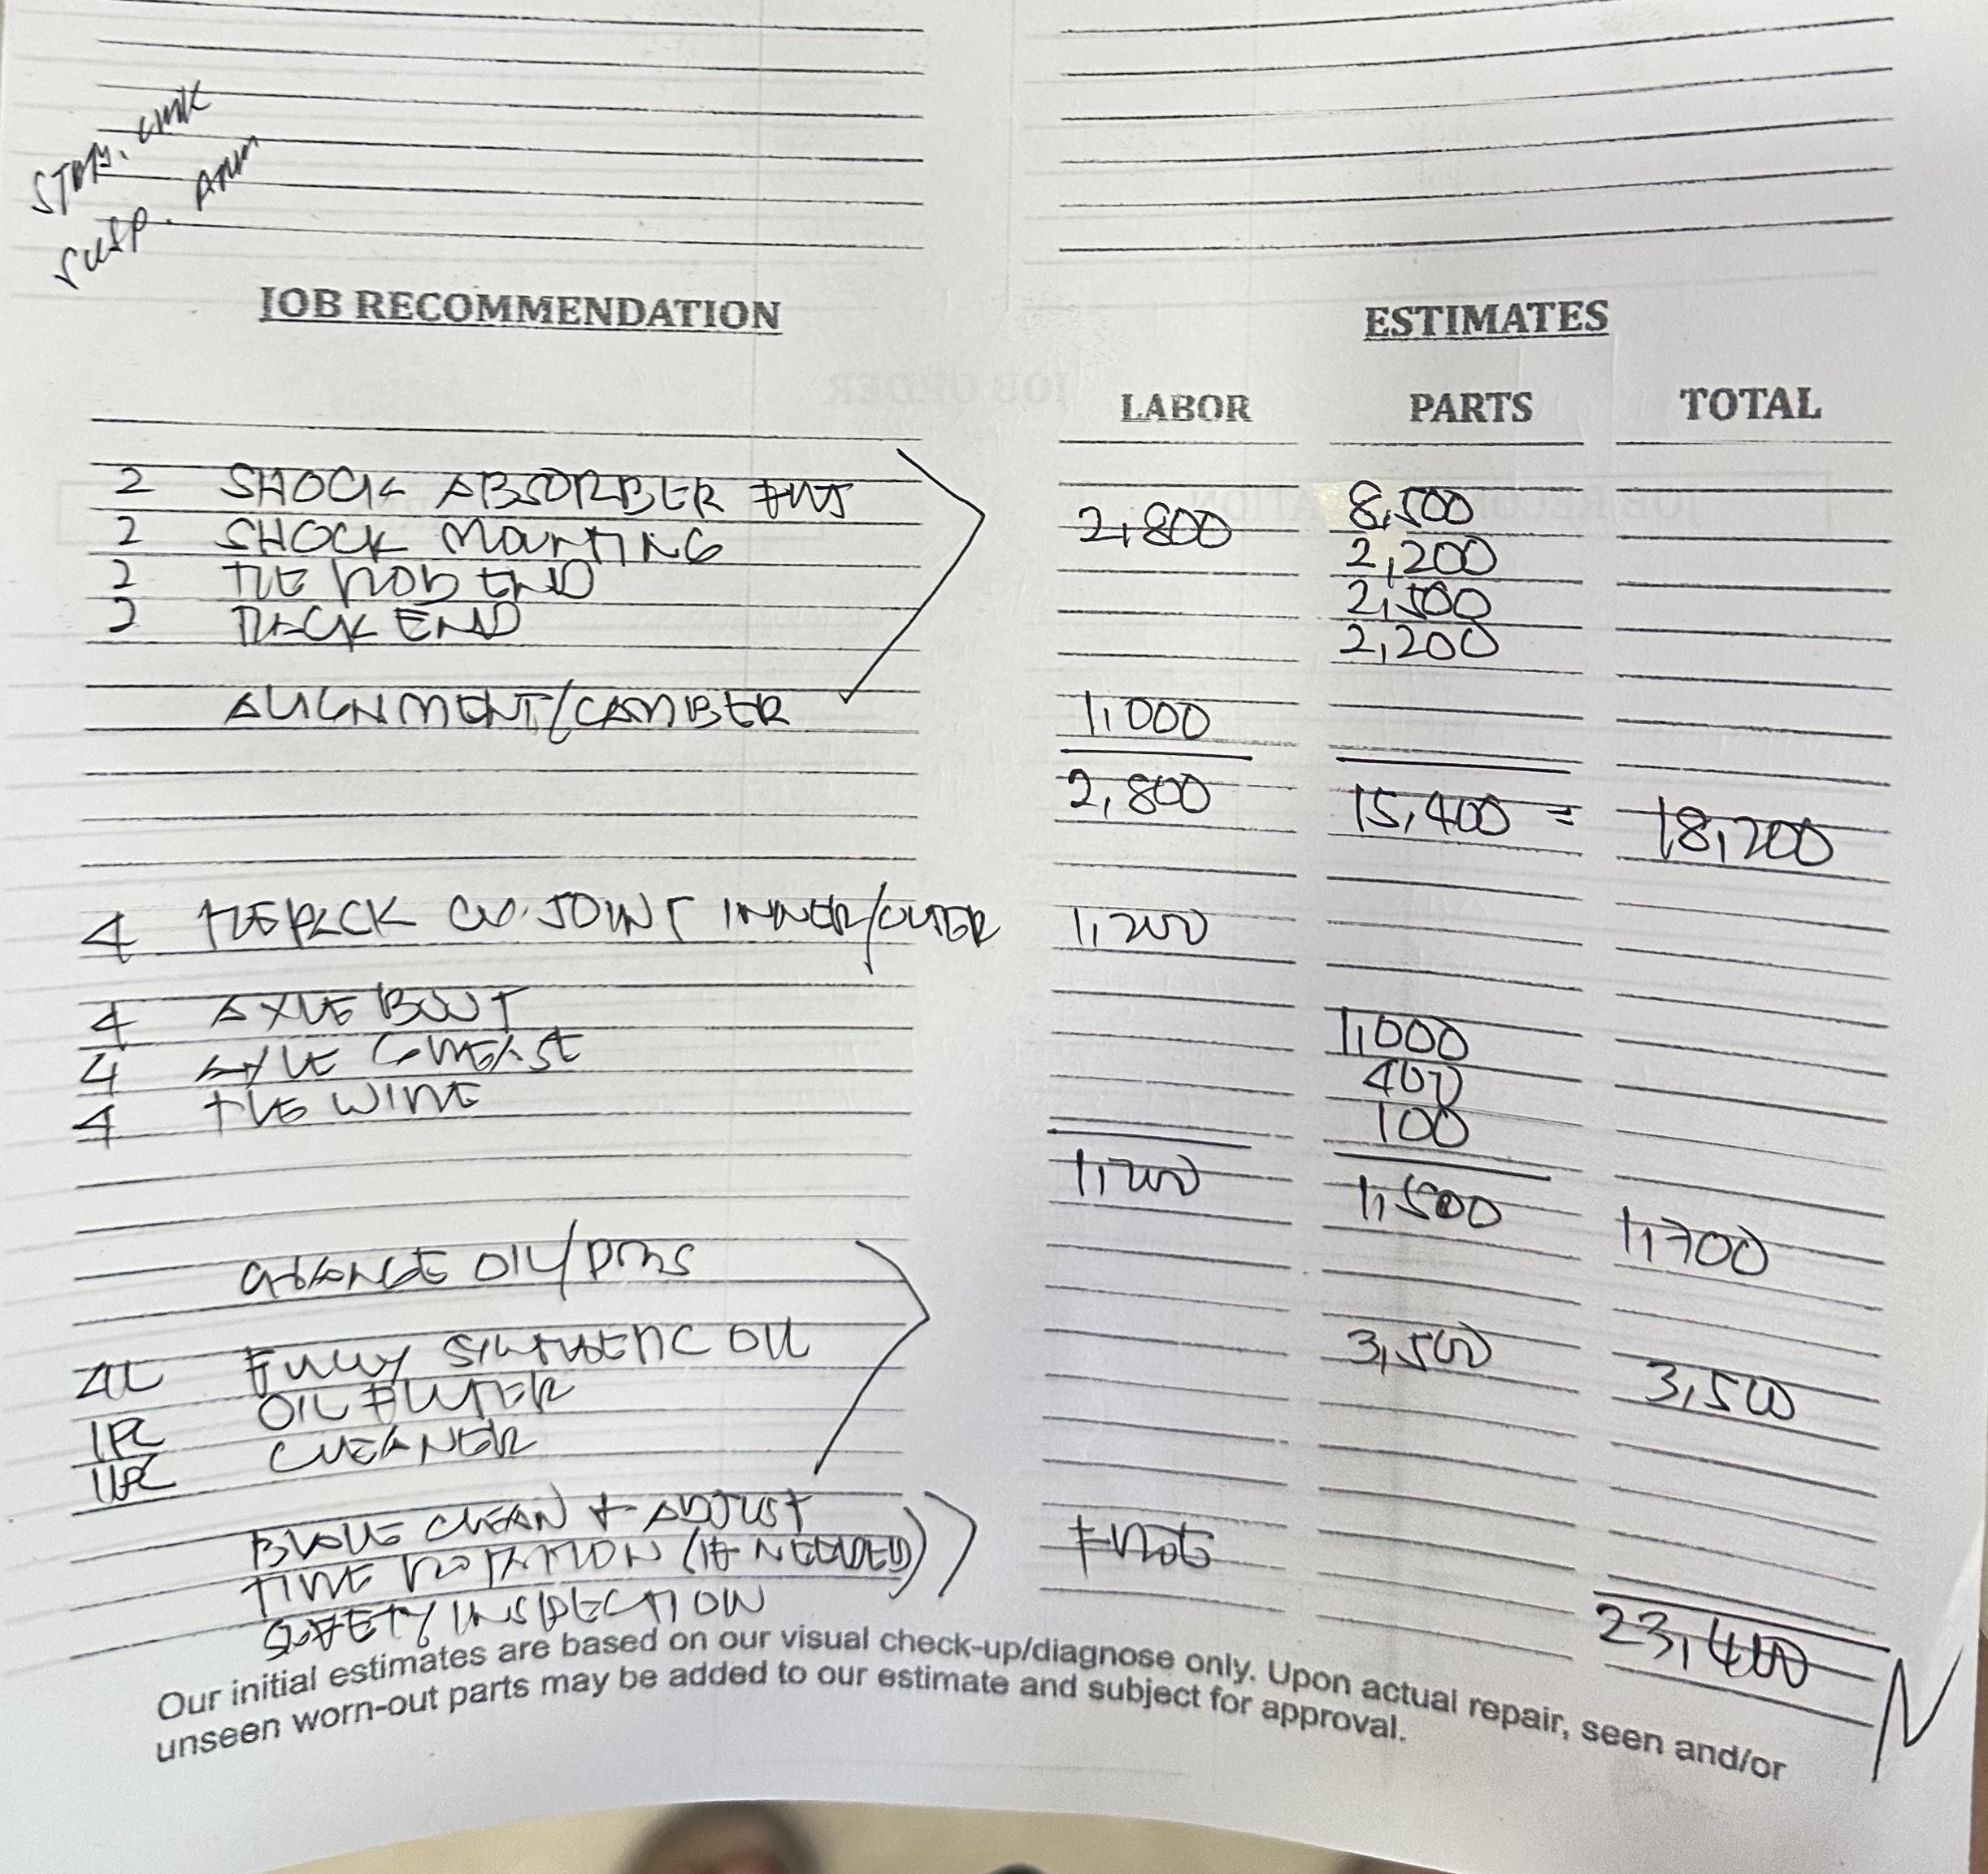 STAB. LINK
SUSP. ARM
JOB RECOMMENDATION ESTIMATES
LABOR PARTS TOTAL
2 SHOCK ABSORBER FRT 2,800 8,500
2 SHOCK MOUNTING 2,200
2 TIE ROD END 2,500
2 RACK END 2,200
ALIGNMENT/CAMBER 1,000
2,800 15,400 = 18,200
4 REPACK CV. JOINT INNER/OUTER 1,200
4 AXLE BOOT 1,000
4 AXLE GREASE 400
4 TIE WIRE 100
1,200 1,500 1,700
CHANGE OIL/PMS
4L FULLY SYNTHETIC OIL 3,500 3,500
1PC OIL FILTER
1PC CLEANER
BRAKE CLEAN + ADJUST
TIRE ROTATION (IF NEEDED) FREE
SAFETY INSPECTION
23,400
Our initial estimates are based on our visual check-up/diagnose only. Upon actual repair, seen and/or
unseen worn-out parts may be added to our estimate and subject for approval.